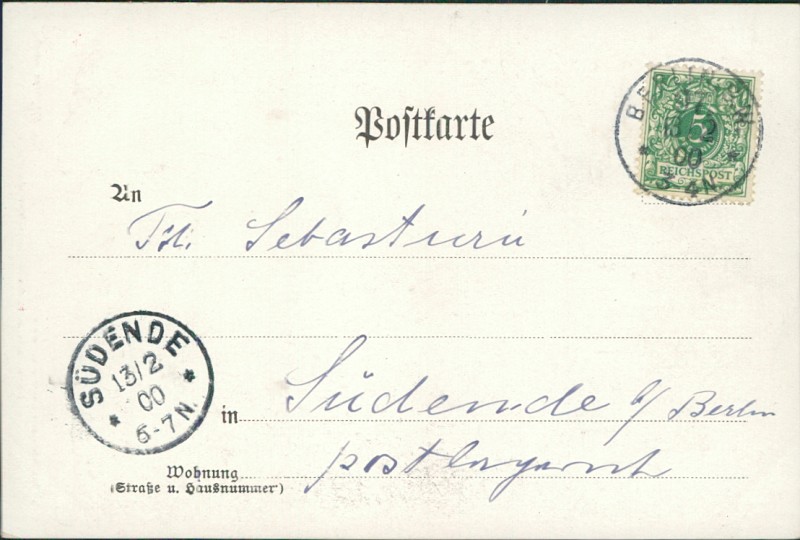 Postkarte
BERLIN S.W.
13/2
00
3-4N
5
REICHSPOST
An
Frl. Sebasturü
SÜDENDE
13/2
00
6-7N.
in Südende b/ Berlin
postlagernd
Wohnung
(Straße u. Hausnummer)